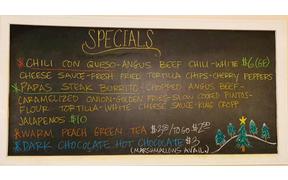 SPECIALS
CHILI CON QUESO-ANGUS BEEF CHILI-WHITE $6(GF)
CHEESE SAUCE-FRESH FRIED TORTILLA CHIPS-CHERRY PEPPERS
PAPAS STEAK BURRITO-CHOPPED ANGUS BEEF-
CARAMELIZED ONION-GOLDEN FRIES-SLOW COOKED PINTOS-
FLOUR TORTILLA-WHITE CHEESE SAUCE-KING CROPP
JALAPENOS $10
WARM PEACH GREEN TEA $2.50/TO GO $2.50
DARK CHOCOLATE HOT CHOCOLATE $3
(MARSHMALLOWS AVAIL.)